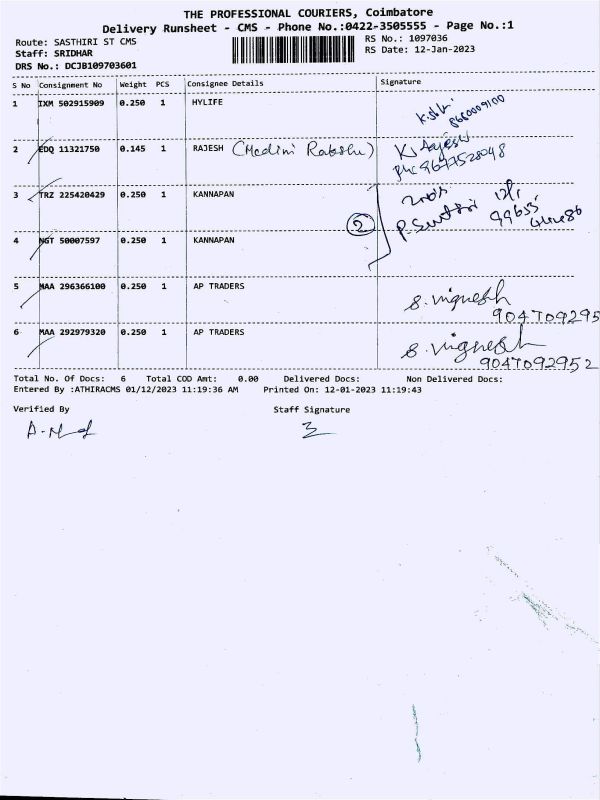 THE PROFESSIONAL COURIERS, Coimbatore
Delivery Runsheet - CMS - Phone No.:0422-3505555 - Page No.:1
Route: SASTHIRI ST CMS
Staff: SRIDHAR
DRS No.: DCJB109703601
RS No.: 1097036
RS Date: 12-Jan-2023
S No Consignment No Weight PCS Consignee Details Signature
1 IXM 502915909 0.250 1 HYLIFE
8680009100
2 EDQ 11321750 0.145 1 RAJESH (Medini Rakshu) K. Rajesh
9677528048
3 TRZ 225420429 0.250 1 KANNAPAN
2
4 NGT 50007597 0.250 1 KANNAPAN
5 MAA 296366100 0.250 1 AP TRADERS S. Vignesh
904709295
6 MAA 292979320 0.250 1 AP TRADERS S. Vignesh
9047092952
Total No. Of Docs: 6 Total COD Amt: 0.00 Delivered Docs: Non Delivered Docs:
Entered By :ATHIRACMS 01/12/2023 11:19:36 AM Printed On: 12-01-2023 11:19:43
Verified By Staff Signature